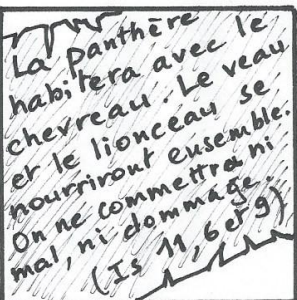 La panthère
habitera avec le
chevreau. Le veau
et le lionceau se
nourriront ensemble.
On ne commettra ni
mal, ni dommage.
(Is 11, 6 et 9)